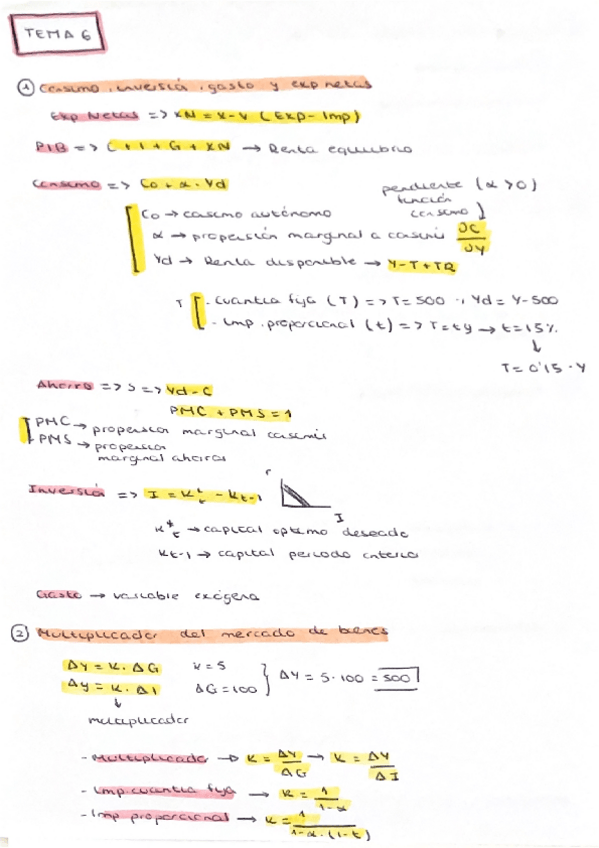 TEMA 6
① Consumo, inversión, gasto y exp netas
Exp Netas => XN = X-M (Exp-Imp)
PIB => C+I+G+XN → Renta equilibrio
Consumo => Co + α · Yd
pendiente (α>0)
función
consumo
Co → consumo autónomo
α → propensión marginal a consumir ∂C/∂Y
Yd → Renta disponible → Y-T+TR
T [ - Cuantía fija (T) => T= 500 ; Yd = Y-500
- Imp. proporcional (t) => T=ty → t=15%
↓
T= 0'15 · Y
Ahorro => S => Yd-C
PMC + PMS = 1
PMC → propensión marginal consumir
PMS → propension
marginal ahorrar
r
Inversión => I = K*t - Kt-1
I
K*t → capital optimo deseado
Kt-1 → capital periodo anterior
Gasto → variable exógena
② Multiplicador del mercado de bienes
ΔY = K · ΔG K = 5
ΔY = K · ΔI ΔG = 100 } ΔY = 5 · 100 = 500
↓
multiplicador
- Multiplicador → K = ΔY/ΔG → K = ΔY/ΔI
- Imp. cuantía fija → K = 1/1-α
- Imp proporcional → K = 1/1-α·(1-t)